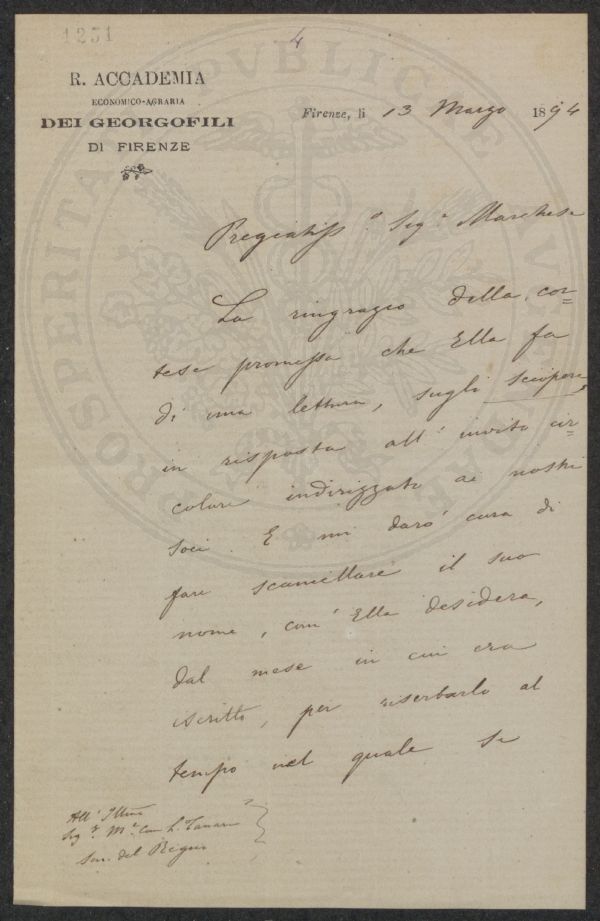 1251
4
R. ACCADEMIA
ECONOMICO-AGRARIA
DEI GEORGOFILI
DI FIRENZE
Firenze, li 13 Marzo 1894
PROSPERITATI PVBLICAE AVGENDAE
Pregiatiss.o Sig.r Marchese
La ringrazio della cor=
tese promessa che Ella fa
di una lettura, sugli scioperi,
in risposta all' invito cir=
colare indirizzato ai nostri
soci. E mi darò cura di
fare scancellare il suo
nome, com' Ella desidera,
dal mese in cui era
iscritto, per riserbarlo al
tempo nel quale se
All' Illmo
Sig.r M.e Cav. L. Tanari
Sen. del Regno